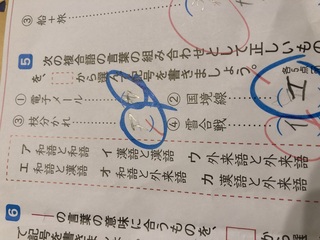 ③ 船＋旅
5 次の複合語の言葉の組み合わせとして正しいもの
を、から選んで記号を書きましょう。
① 電子メール
② 国境線
エ
③ 枝分かれ
④ 雪合戦
ア 和語と和語
イ 漢語と漢語
ウ 外来語と外来語
エ 和語と漢語
オ 和語と外来語
カ 漢語と外来語
6
の言葉の意味に合うものを、
から選
て記号を書きまし